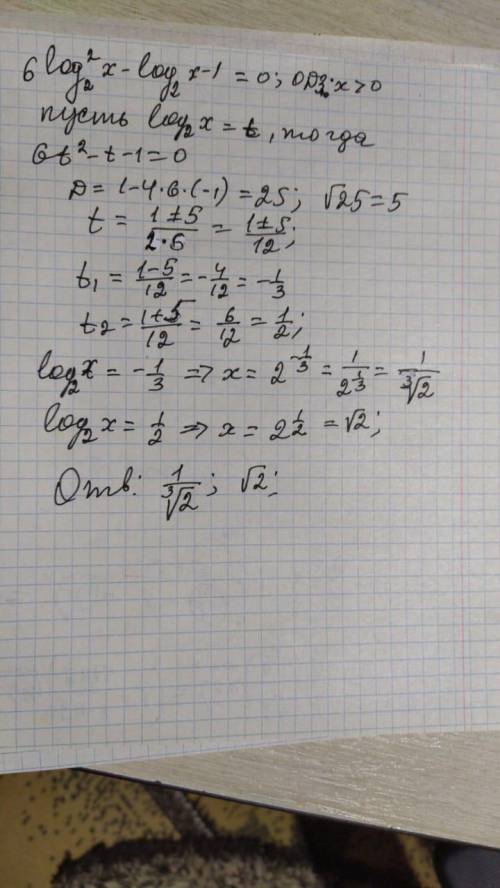 6 log₂² x - log₂ x - 1 = 0; ОДЗ: x > 0
пусть log₂ x = t, тогда
6t² - t - 1 = 0
D = 1 - 4·6·(-1) = 25; √25 = 5
t = (1 ± 5)/(2·6) = (1 ± 5)/12;
t₁ = (1-5)/12 = -4/12 = -1/3
t₂ = (1+5)/12 = 6/12 = 1/2;
log₂ x = -1/3 => x = 2^(-1/3) = 1/2^(1/3) = 1/∛2
log₂ x = 1/2 => x = 2^(1/2) = √2;
Отв: 1/∛2; √2;